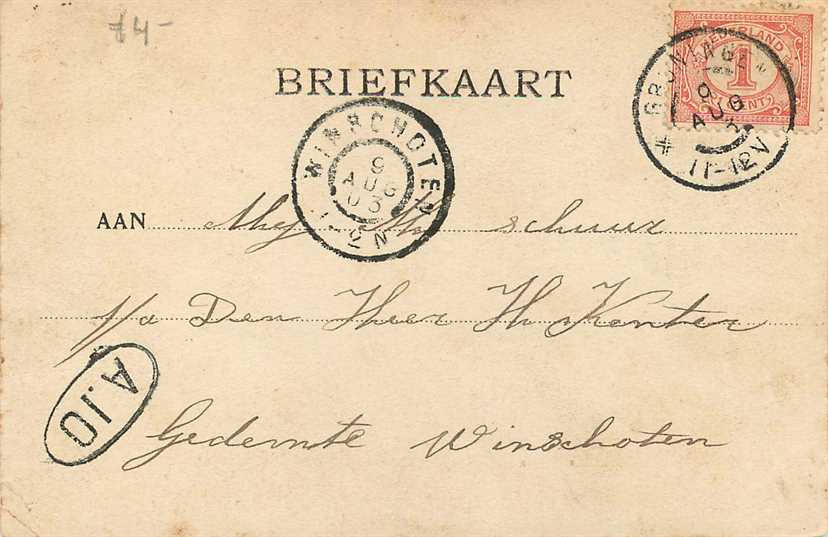 74-
NEDERLAND
1
CENT
BRIEFKAART
GRONINGEN
9 AUG
11-12V
WINSCHOTEN
9
AUG
03
1-2N
AAN Mej M. schuur
p/a Den Heer H. Kenter
A.10
Gedemte Winschoten